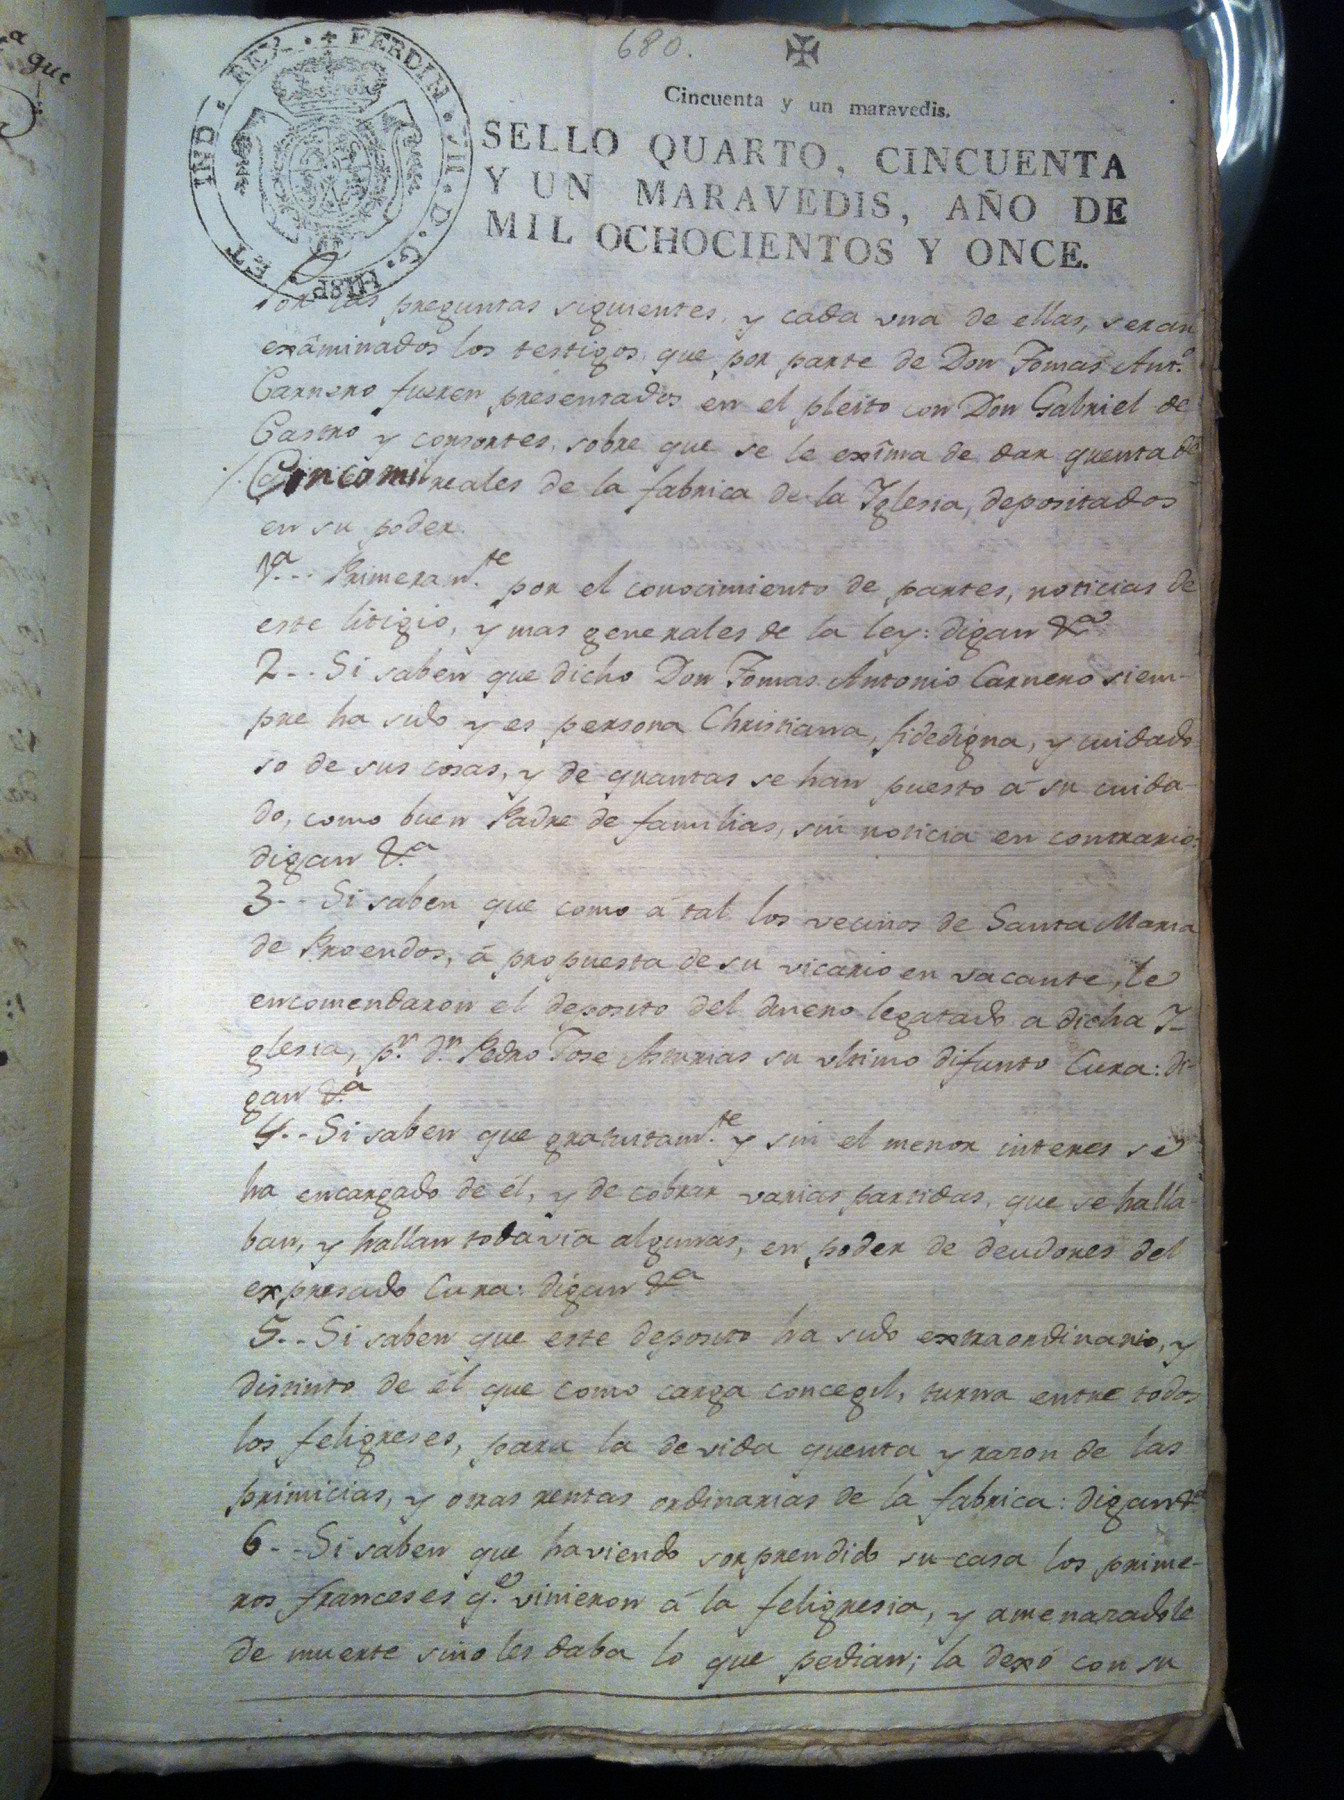 680.
Cincuenta y un maravedis.
SELLO QUARTO, CINCUENTA
Y UN MARAVEDIS, AÑO DE
MIL OCHOCIENTOS Y ONCE.
FERDIN. VII. D. G. HISP. ET IND. REX.
Por las preguntas siguientes, y cada una de ellas, seran
exâminados los testigos que por parte de Don Tomas Ant.º
Carnero fueren presentados en el pleito con Don Gabriel de
Castro y consortes, sobre que se le exîma de dar quenta de
Cinco mil reales de la fabrica de la Yglesia, depositados
en su poder.
1ª.-- Primeram.te por el conocimiento de partes, noticias de
este litigio, y mas generales de la ley: digan &a
2-- Si saben que dicho Don Tomas Antonio Carnero siem-
pre ha sido y es persona Christiana, fidedigna, y cuidado
so de sus cosas, y de quantas se han puesto á su cuida-
do, como buen Padre de familias, sin noticia en contrario:
digan &.a
3-- Si saben que como á tal los vecinos de Santa Maria
de Proendos, á propuesta de su vicario en vacante, le
encomendaron el deposito del dinero legatado a dicha Y-
glesia, p.r d.n Pedro Jose Asturias su ultimo difunto Cura: di-
gan &.a
4-- Si saben que gratuitam.te y sin el menor interes se
ha encargado de él, y de cobrar varias partidas, que se halla-
ban, y hallan todavia algunas, en poder de deudores del
expresado Cura: digan &a
5-- Si saben que este deposito ha sido extraordinario, y
distinto de él que como carga concegil, turna entre todos
los feligreses, para la devida quenta y razon de las
primicias, y otras rentas ordinarias de la fabrica: digan &.a
6-- Si saben que haviendo sorprendido su casa los prime-
ros franceses q.e vinieron á la feligresia, y amenazadole
de muerte sino les daba lo que pedian; la dexó con su